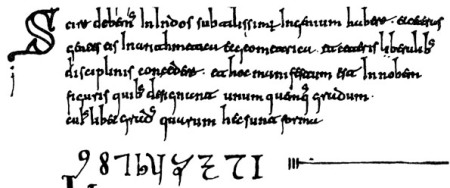 Scire debem' In Indos subtilissimū Ingenium habere. et ceteras
gentes eis In arithmetica et geometrica. et ceteris liberalib'
disciplinis concedere. et hoc manifestum est In nobem
figuris quib' designant unum quemq' gradum.
cui'libet grad'. quarum hec sunt forma
9 8 7 6 5 4 3 2 1